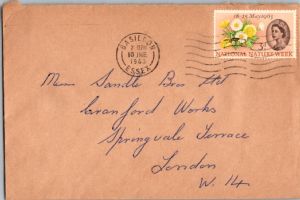 18-25 May 1963
3D
NATIONAL NATURE WEEK
BASILDON
10 JNE
1963
ESSEX
Messrs Sandle Bros Ltd
Cranford Works
Springvale Terrace
London
W. 14